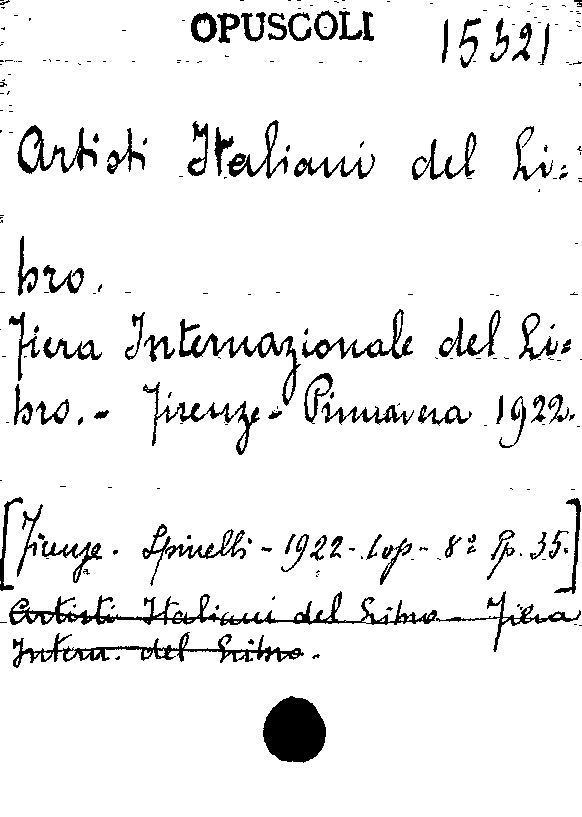 OPUSCOLI 15321
Artisti Italiani del Li=
bro.
Fiera Internazionale del Li=
bro. - Firenze - Primavera 1922.
[Firenze. Spinelli - 1922 - Cop - 8° Pp. 35.]
Artisti Italiani del Libro - Fiera
Intern. del Libro.